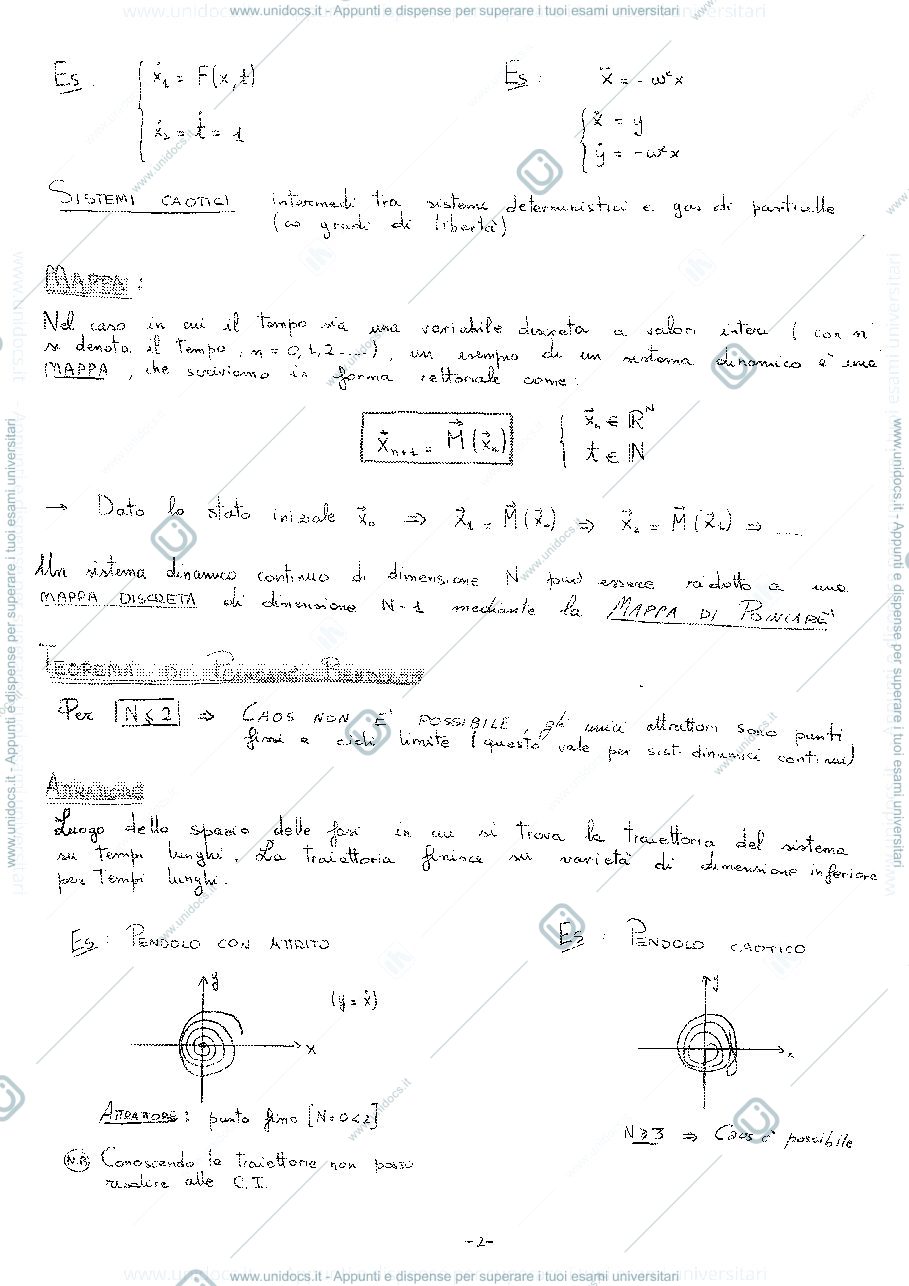 www.unidocs.it - Appunti e dispense per superare i tuoi esami universitari
Es. { ẋ₁ = F(x, t)
ẋ₂ = ṫ = 1
Es: ẍ = - ω²x
{ ẋ = y
ẏ = - ω²x
SISTEMI CAOTICI intermedi tra sistemi deterministici e gas di particelle
(∞ gradi di libertà)
MAPPA:
Nel caso in cui il tempo sia una variabile discreta a valori interi (con n
si denota il tempo, n = 0, 1, 2 ....), un esempio di un sistema dinamico è una
MAPPA, che scriviamo in forma vettoriale come:
x⃗ₙ₊₁ = M⃗(x⃗ₙ) { x⃗ₙ ∈ ℝᴺ
t ∈ ℕ
→ Dato lo stato iniziale x⃗₀ ⇒ x⃗₁ = M⃗(x⃗₀) ⇒ x⃗₂ = M⃗(x⃗₁) ⇒ ....
Un sistema dinamico continuo di dimensione N può essere ridotto a una
MAPPA DISCRETA di dimensione N-1 mediante la MAPPA DI POINCARÈ
TEOREMA DI POINCARÈ BENDIXSON
Per N ≤ 2 ⇒ CAOS NON E' POSSIBILE, gli unici attrattori sono punti
fissi e cicli limite (questo vale per sist. dinamici continui)
ATTRAZIONE
Luogo dello spazio delle fasi in cui si trova la traiettoria del sistema
su tempi lunghi. La traiettoria finisce su varietà di dimensione inferiore
per tempi lunghi.
Es: PENDOLO CON ATTRITO
Es: PENDOLO CAOTICO
y
(y = ẋ)
x
y
x
ATTRATTORE: punto fisso [N=0<2]
N ≥ 3 ⇒ Caos è possibile
N.B. Conoscendo la traiettoria non posso
risalire alle C.I.
-2-
www.unidocs.it - Appunti e dispense per superare i tuoi esami universitari